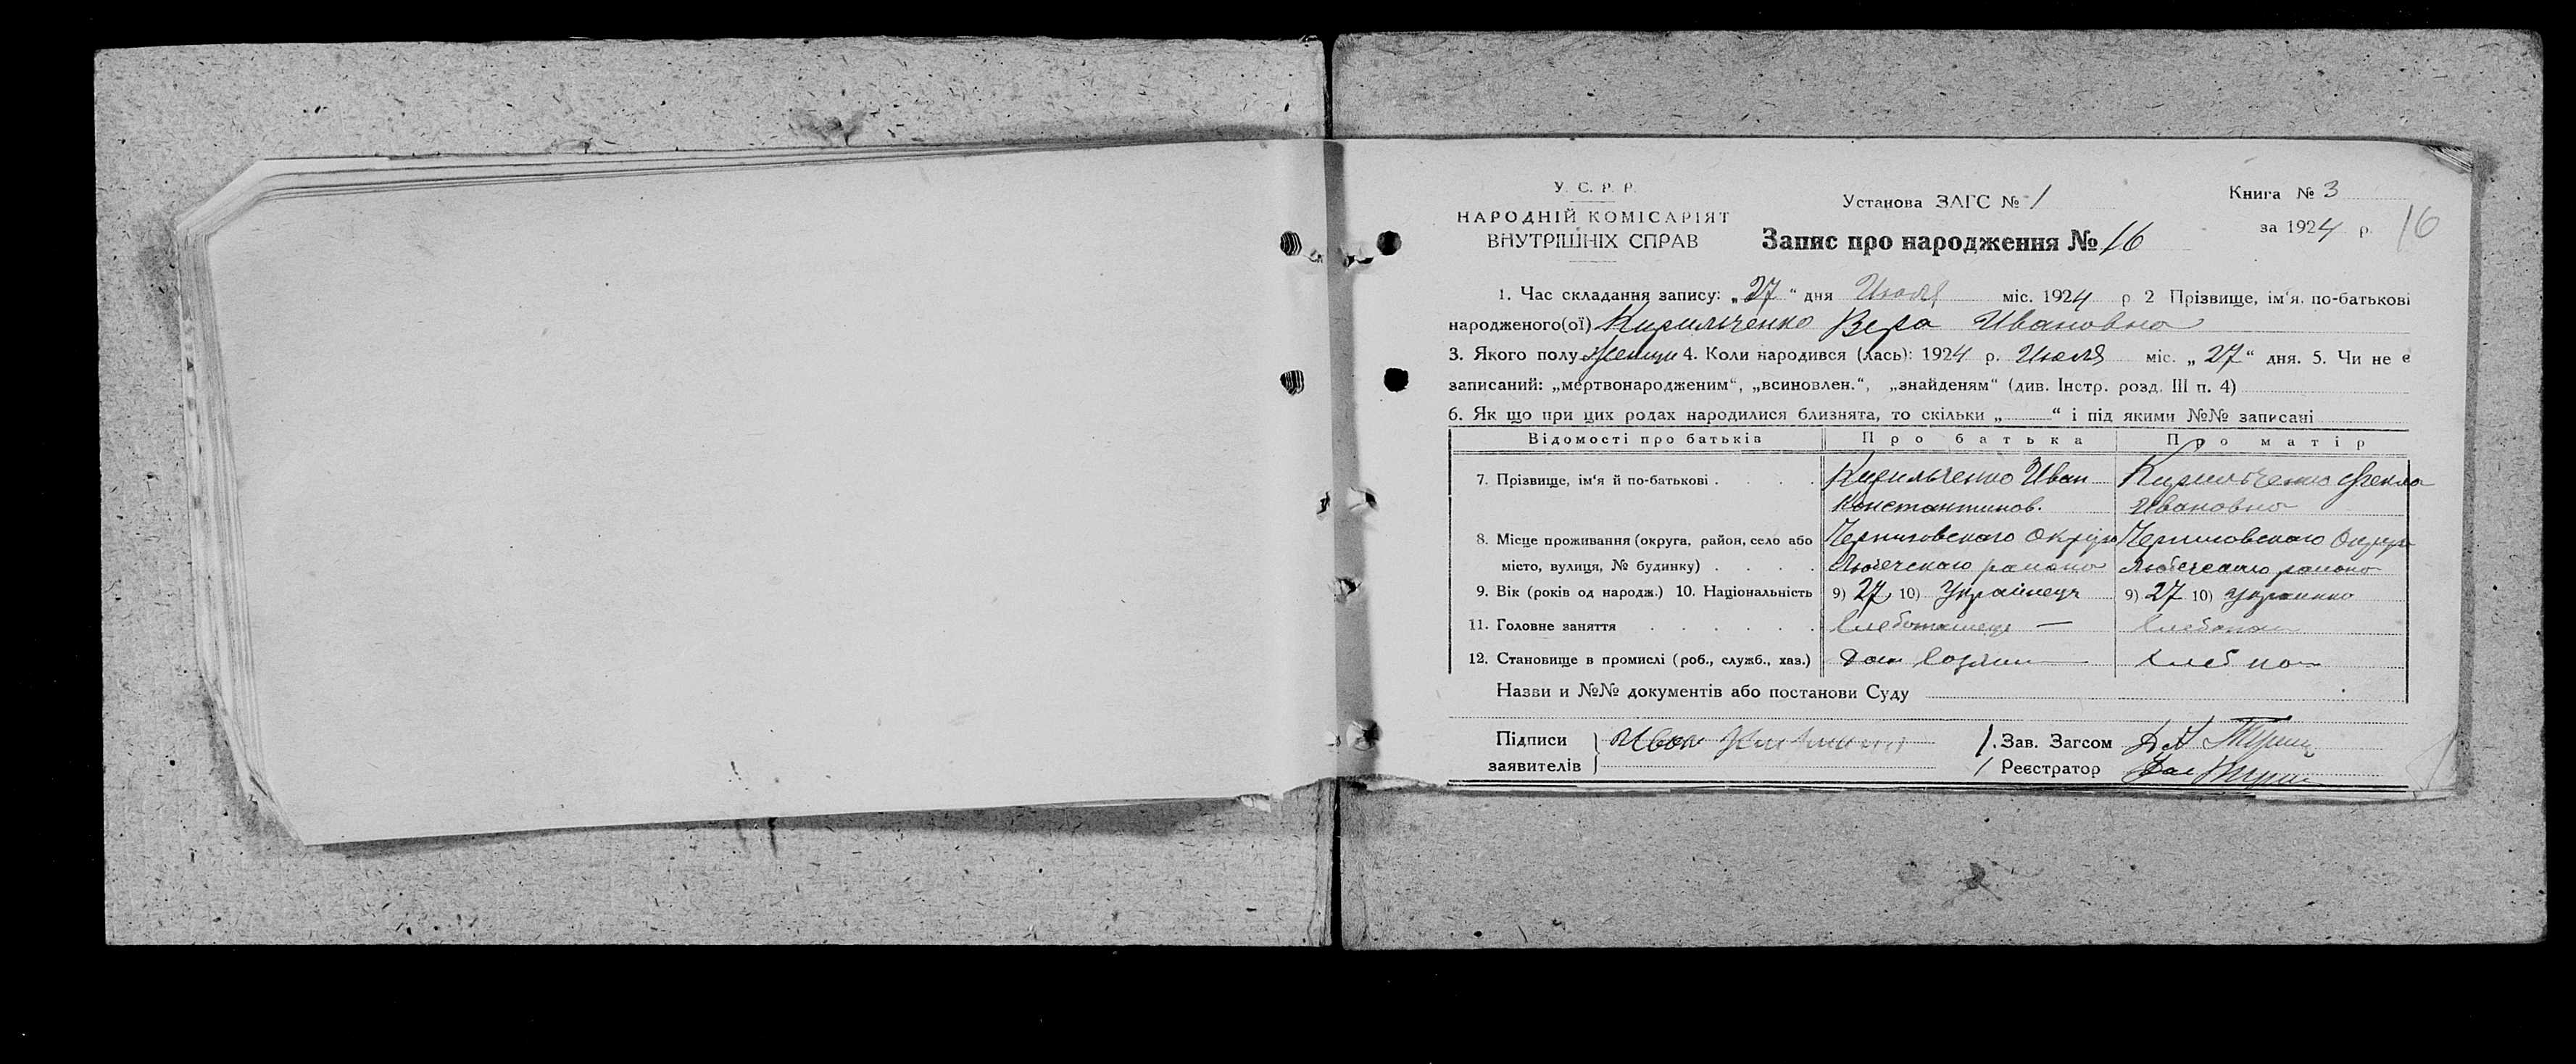 У. С. Р. Р.
НАРОДНІЙ КОМІСАРІЯТ
ВНУТРІШНІХ СПРАВ
Установа ЗАГС № 1
Запис про народження № 16
Книга № 3
за 1924 р.
16
1. Час складання запису: „27“ дня Июля міс. 1924 р 2 Прізвище, ім‘я, по-батькові
народженого(ої) Кирильченко Вера Ивановна
3. Якого полу женщи 4. Коли народився (лась): 1924 р. Июля міс. „27“ дня. 5. Чи не є
записаний: „мертвонародженим“, „всиновлен.“, „знайденям“ (див. Інстр. розд. III п. 4)
6. Як що при цих родах народилися близнята, то скільки „ “ і під якими №№ записані
Відомості про батьків Про батька Про матір
7. Прізвище, ім‘я й по-батькові . . . . . Кирильченко Иван Кирильченко Фекла
Константинов. Ивановна
8. Місце проживання (округа, район, село або Черниговского Округа Черниговского Округа
місто, вулиця, № будинку) . . . . Любечскаго раиона Любечскаго раиона
9. Вік (років од народж.) 10. Національність 9) 27 10) Украинец 9) 27 10) украинка
11. Головне заняття . . . . . . Хлебопашец —
12. Становище в промислі (роб., служб., хаз.)
Назви и №№ документів або постанови Суду
Підписи Иван 1. Зав. Загсом
заявителів / Реєстратор